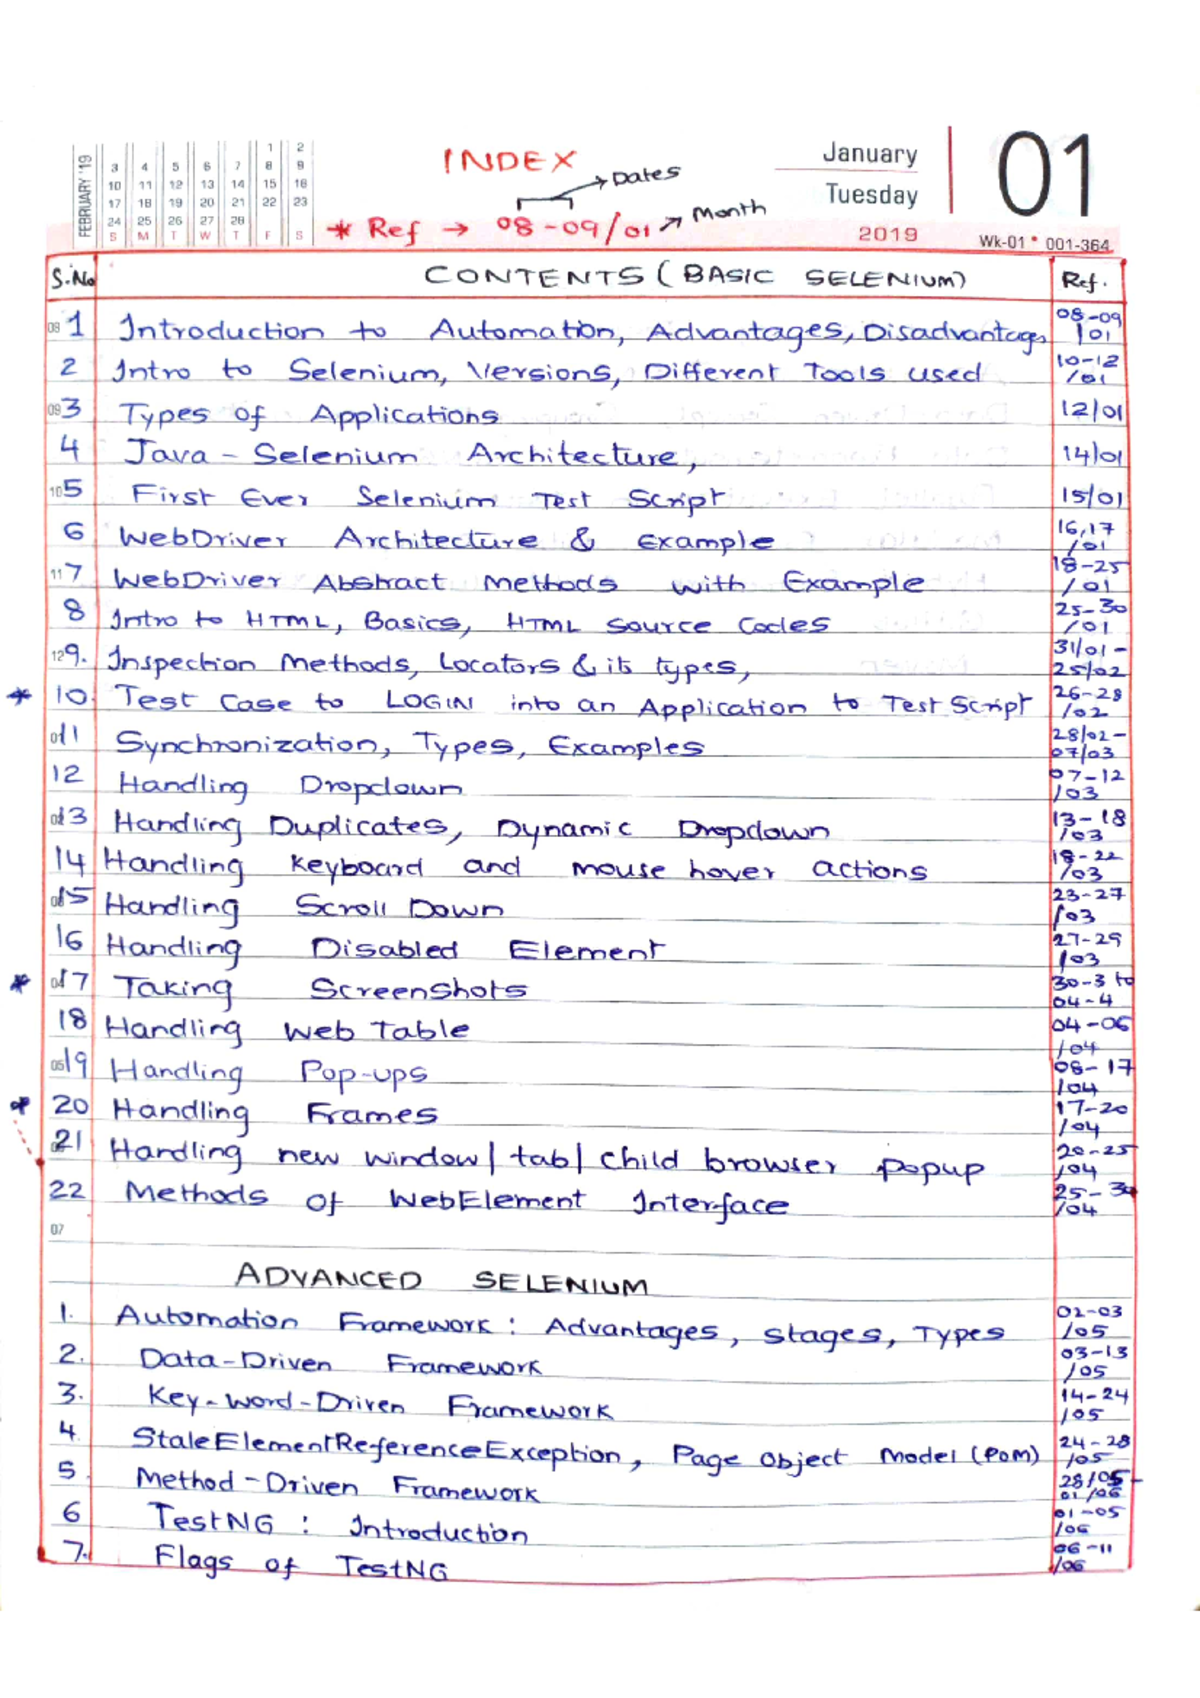 FEBRUARY '19
1 2
3 4 5 6 7 8 9
10 11 12 13 14 15 16
17 18 19 20 21 22 23
24 25 26 27 28
S M T W T F S
INDEX
January
Tuesday
2019
01
Wk-01 • 001-364
Dates
* Ref → 08-09/01 Month
S.No CONTENTS (BASIC SELENIUM) Ref.
08 1 Introduction to Automation, Advantages, Disadvantages 08-09/01
2 Intro to Selenium, Versions, Different Tools used 10-12/01
09 3 Types of Applications 12/01
4 Java - Selenium Architecture, 14/01
10 5 First Ever Selenium Test Script 15/01
6 WebDriver Architecture & Example 16,17/01
11 7 WebDriver Abstract Methods with Example 18-25/01
8 Intro to HTML, Basics, HTML Source Codes 25-30/01
12 9. Inspection Methods, Locators & its types, 31/01-25/02
* 10. Test Case to LOGIN into an Application to Test Script 26-28/02
01 11 Synchronization, Types, Examples 28/02-07/03
12 Handling Dropdown 07-12/03
02 13 Handling Duplicates, Dynamic Dropdown 13-18/03
14 Handling Keyboard and mouse hover actions 18-22/03
03 15 Handling Scroll Down 23-27/03
16 Handling Disabled Element 27-29/03
* 04 17 Taking Screenshots 30-3 to 04-4
18 Handling Web Table 04-06/04
05 19 Handling Pop-ups 08-17/04
* 20 Handling Frames 17-20/04
21 Handling new window/tab/child browser popup 20-25/04
22 Methods of WebElement Interface 25-30/04
07
ADVANCED SELENIUM
1. Automation Framework: Advantages, Stages, Types 02-03/05
2. Data-Driven Framework 03-13/05
3. Key-word-Driven Framework 14-24/05
4. StaleElementReferenceException, Page Object Model (POM) 24-28/05
5. Method-Driven Framework 28/05-01/06
6 TestNG: Introduction 01-05/06
7. Flags of TestNG 06-11/06